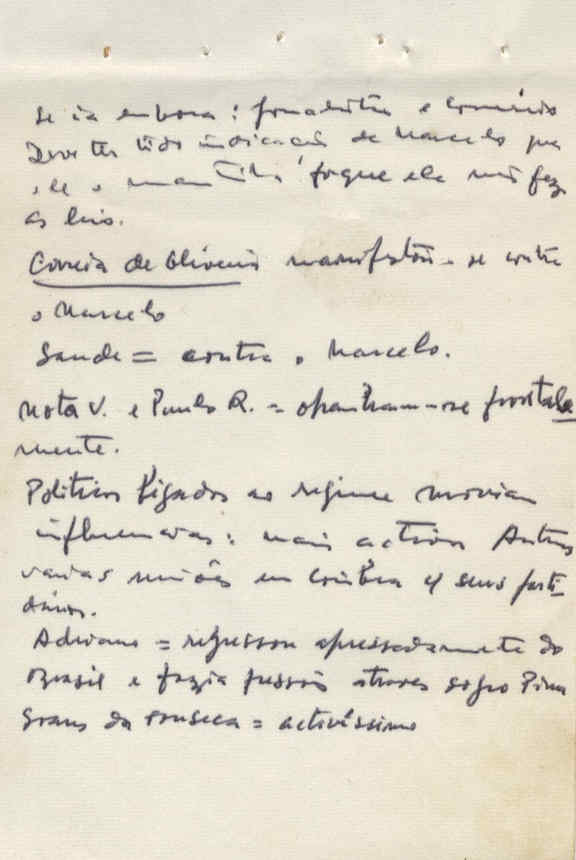 se ia embora: jornalistas e comércio
Deve ter tido indicação de Marcelo que
ele o porque ele não fez
as leis.
Correia de Oliveira manifestou-se contra
o Marcelo
Saude = contra o Marcelo.
Mota V. e Paulo R. = opunham-se frontal
mente.
Politicos ligados ao regime moviam
influencias: mais activos Antunes
varias reuniões em Coimbra c/ seus parti-
dários.
Adriano = regressou apressadamente do
Brasil e fazia pressões atraves sogro
da Fonseca = activissimo